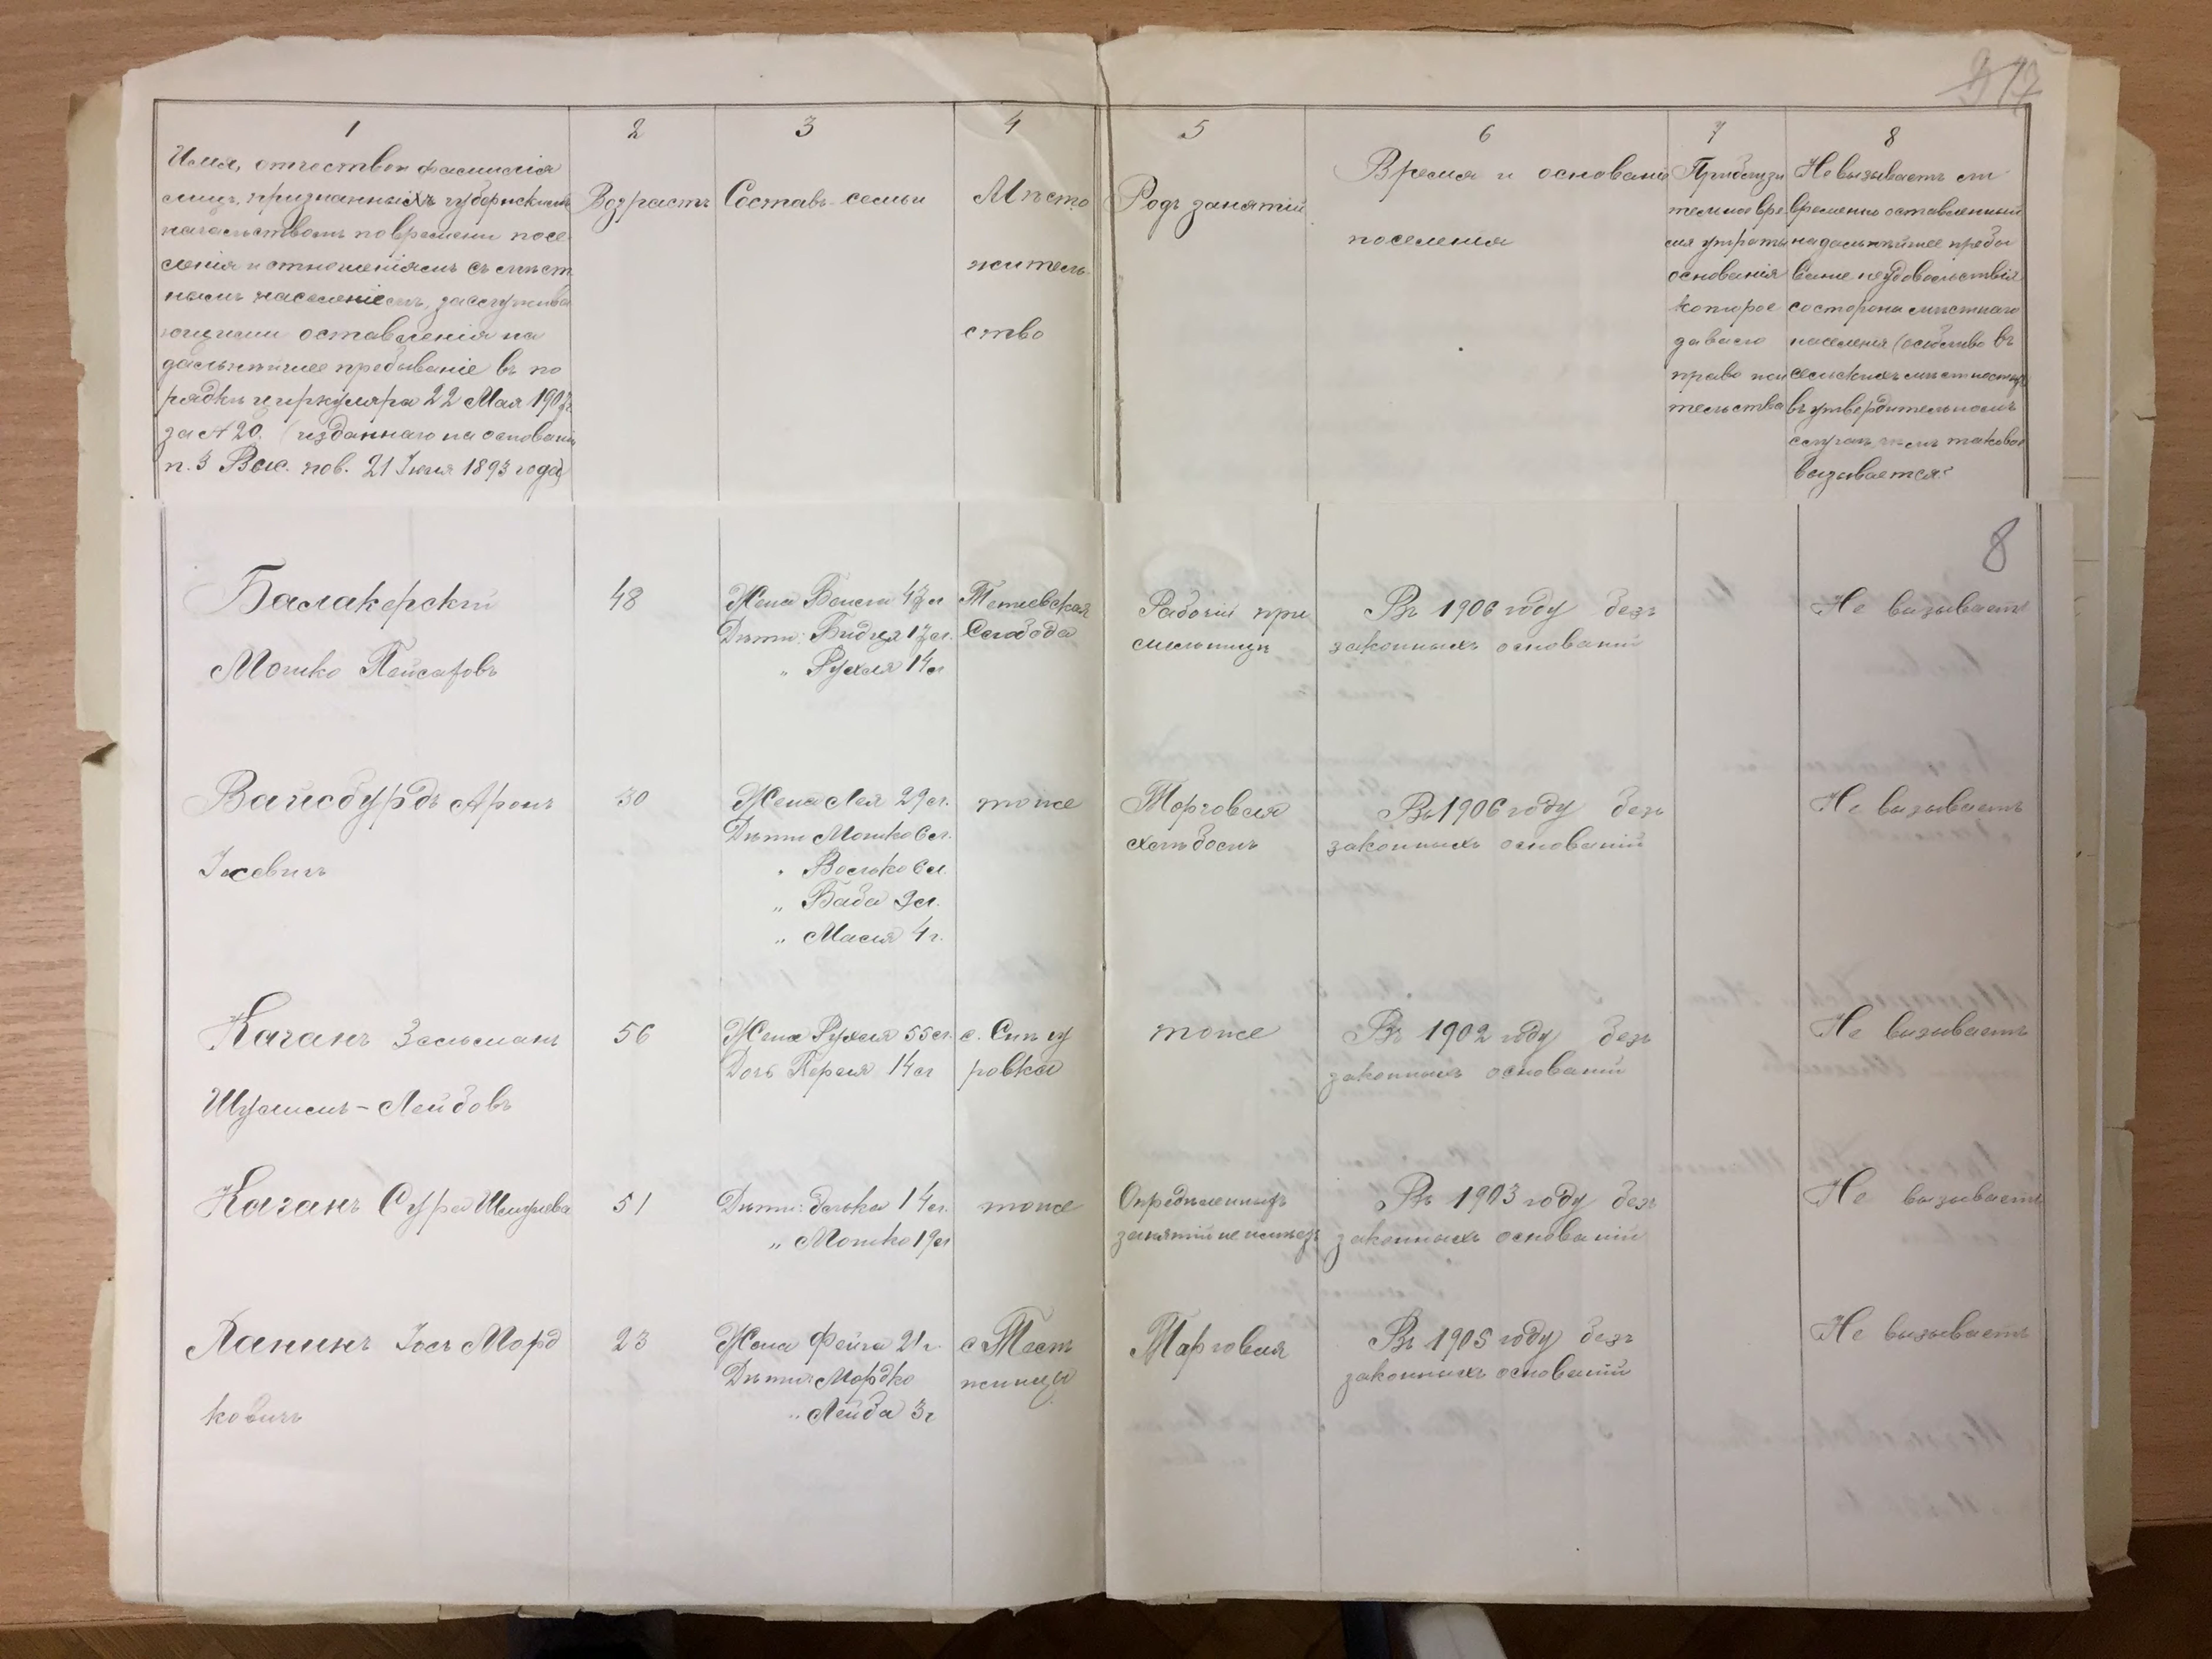 17
1
2
3
4
5
6
7
8
Имя, отчество и фамилія
лицъ, признанныхъ губернскимъ
начальствомъ по времени посе
ленія и отношеніямъ съ мѣст
нымъ населеніемъ, заслужива
ющими оставленія на
дальнѣйшее пребываніе въ по
рядкѣ циркуляра 22 Мая 1907г.
за № 20. (изданнаго на основаніи
п. 3 Выс. пов. 21 Іюля 1893 года)
Возрастъ
Составъ семьи
Мѣсто
житель
ство
Родъ занятій
Время и основаніе
поселенія
Приблизи
тельное вре
мя утраты
основанія
которое
давало
право жи
тельства
Не вызываетъ ли
временно оставленный
на дальнѣйшее пребы
ваніе неудовольствія
со стороны мѣстнаго
населенія (особливо въ
сельскихъ мѣстностяхъ
въ утвердительномъ
случаѣ чѣмъ таковое
вызывается?
8
Балакерскій
Мошко Пейсаховъ
48
Жена Бейла 47 л
Дѣти: Бидея 17 л.
„ Рухля 14 л
Тетіевская
Слобода
Рабочій при
мельницѣ
Въ 1906 году безъ
законныхъ основаній
Не вызываетъ
Вайсбурдъ Аронъ
Іосевичъ
30
Жена Лея 29 л.
Дѣти Мошко 6 л.
„ Волько 6 л.
„ Баба 9 л.
„ Масля 4 г.
тоже
Торговля
хлѣбомъ
Въ 1906 году безъ
законныхъ основаній
Не вызываетъ
Каганъ Зельманъ
Шулимъ-Лейбовъ
56
Жена Рухля 55 л.
Дочь Перля 14 л
с. Снѣгу
ровка
тоже
Въ 1902 году безъ
законныхъ основаній
Не вызываетъ
Каганъ Сура Шмулева
51
Дѣти: Элька 14 л.
„ Мошко 19 л
тоже
Опредѣленныхъ
занятій не имѣетъ
Въ 1903 году безъ
законныхъ основаній
Не вызываетъ
Ланинъ Іось Морд
ковичъ
23
Жена Фейга 21 г.
Дѣти Мордко
„ Лейба 3 г
с.
Торговля
Въ 1905 году безъ
законныхъ основаній
Не вызываетъ